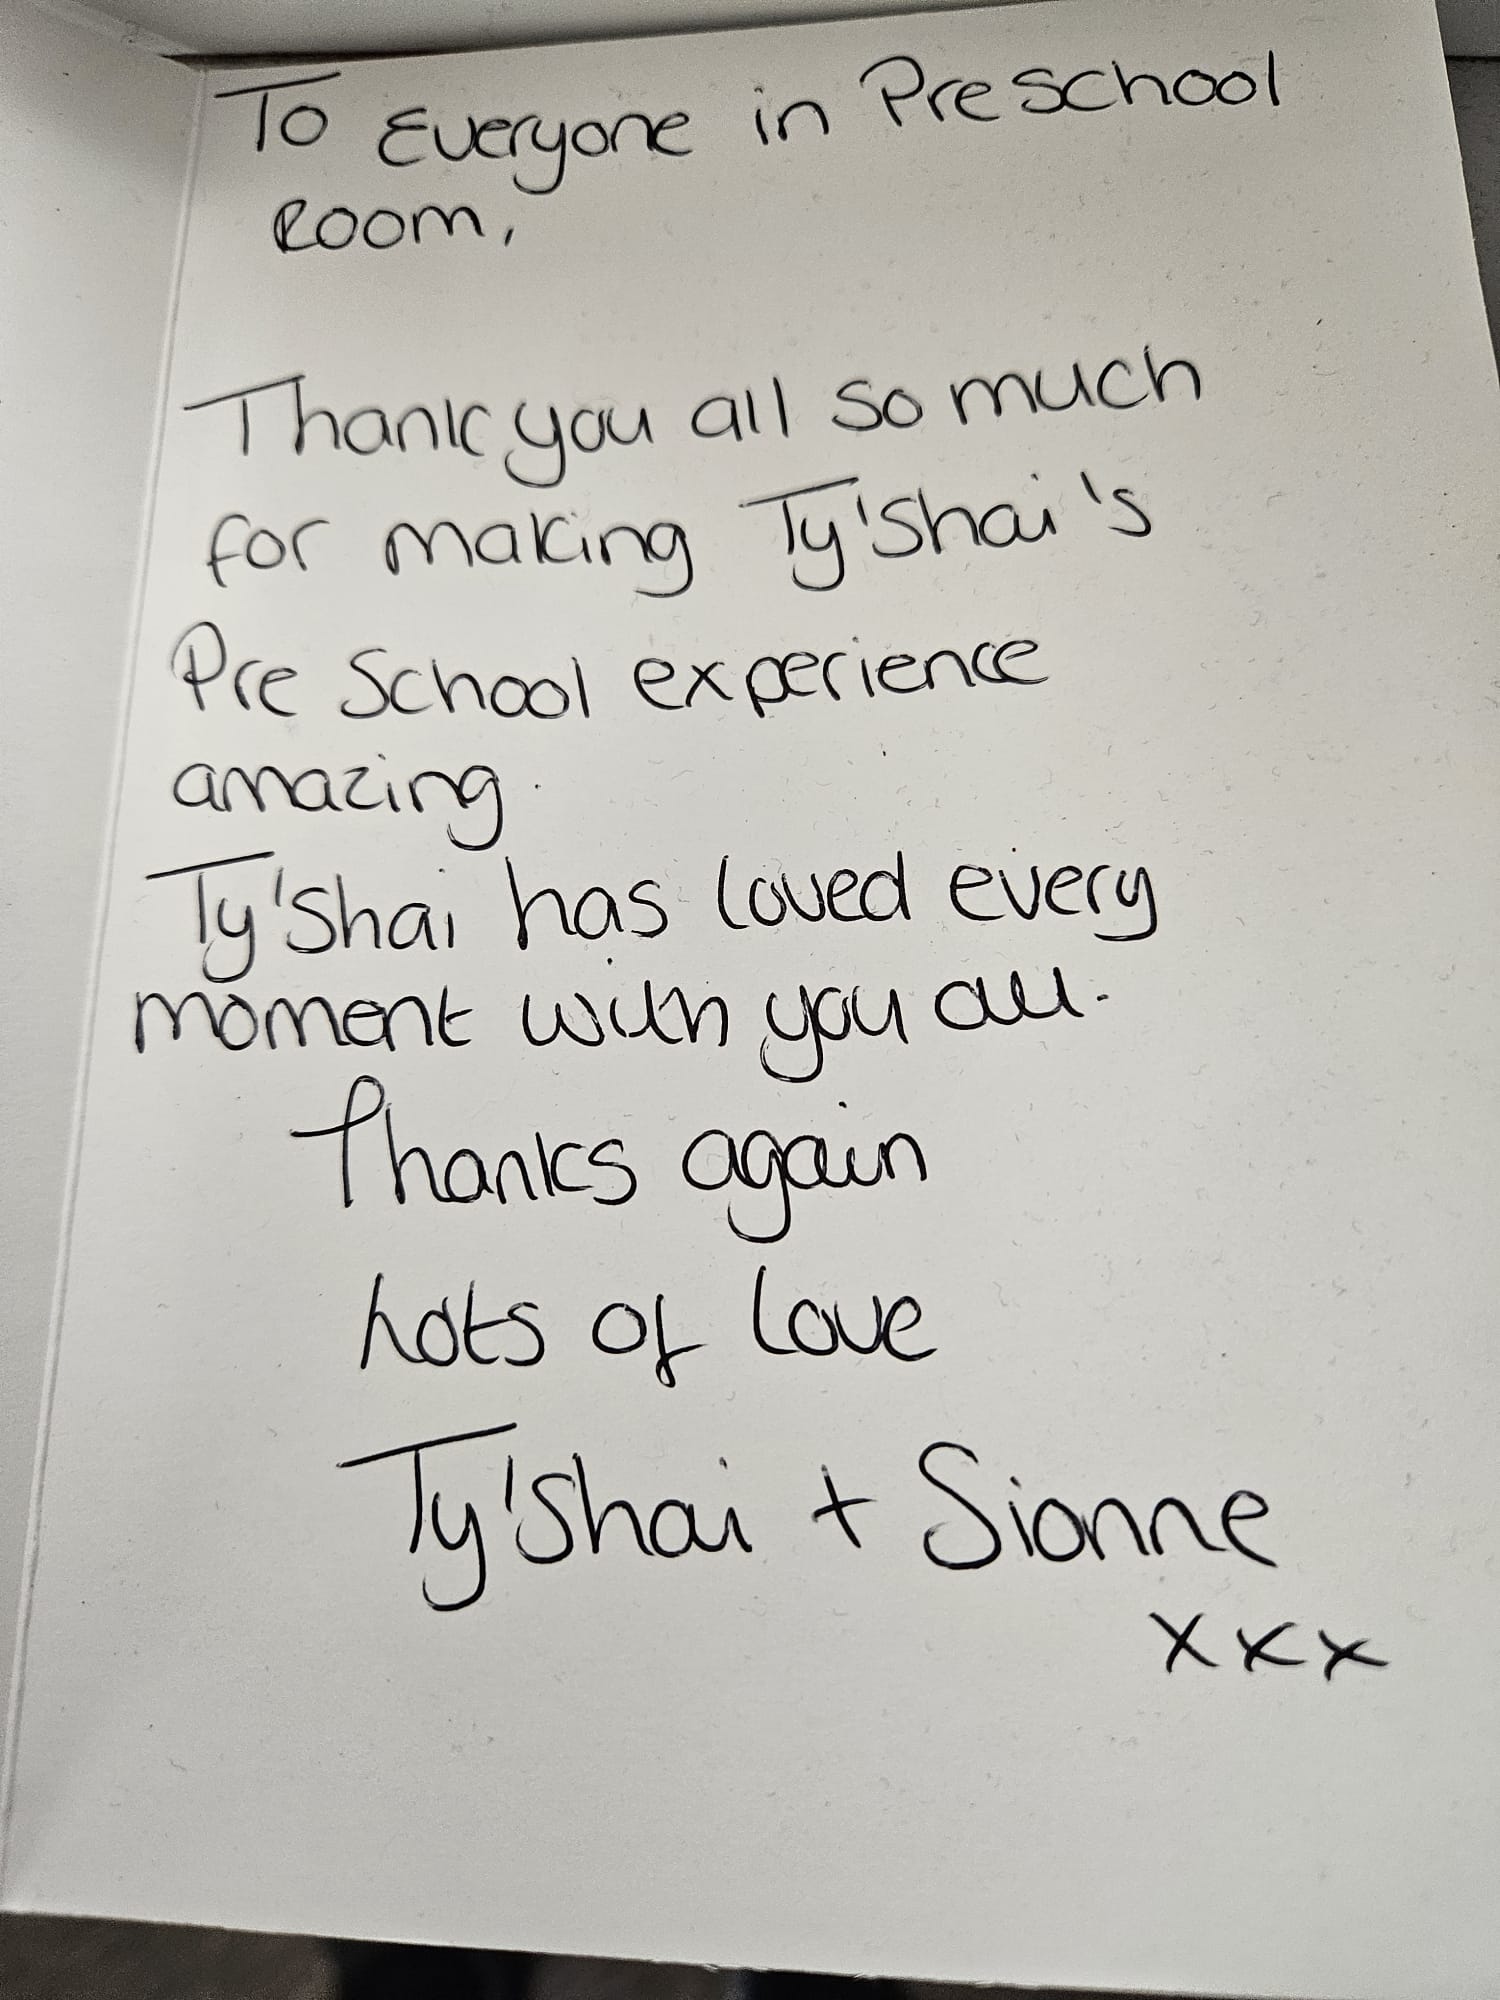 To Everyone in Preschool
Room,
Thank you all so much
for making Ty'Shai's
Pre School experience
amazing.
Ty'Shai has loved every
moment with you all.
Thanks again
Lots of love
Ty'Shai + Sionne
xxx